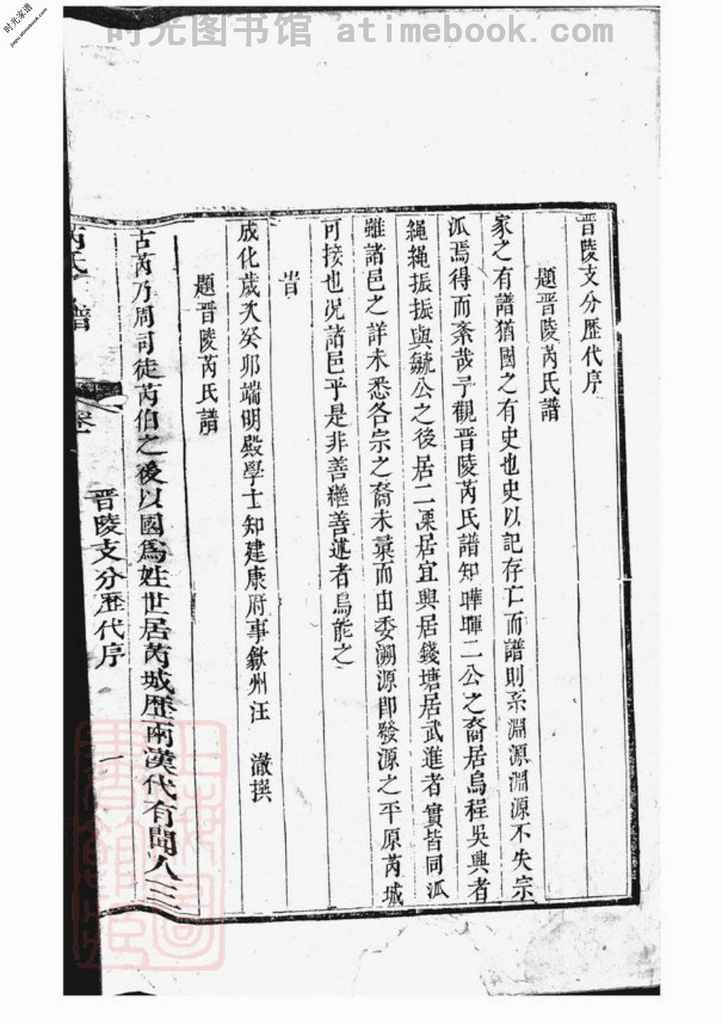 时光图书馆 atimebook.com
时光家谱
jiapu.atimebook.com
晋陵支分歷代序
題晋陵芮氏譜
家之有譜猶國之有史也史以記存亡而譜則系淵源淵源不失宗
派焉得而紊哉予觀晋陵芮氏譜知曄暉二公之裔居烏程吳興者
繩繩振振與毓公之後居二溧居宜興居錢塘居武進者實皆同派
雖諸邑之詳未悉各宗之裔未彙而由委溯源即發源之平原芮城
可接也况諸邑乎是非善繼善述者烏能之
旹
成化歲次癸卯端明殿學士知建康府事歙州汪　澈撰
題晋陵芮氏譜
古芮乃周司徒芮伯之後以國爲姓世居芮城歷兩漢代有聞人三
芮氏譜
卷一
晋陵支分歷代序
一